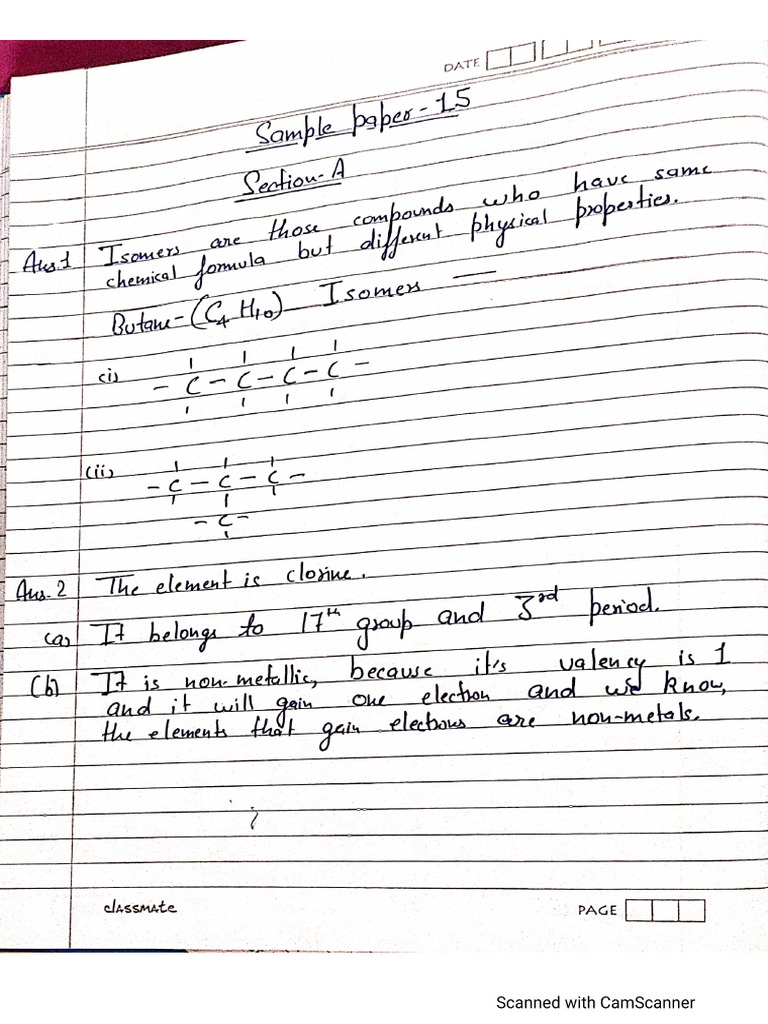 DATE
Sample paper - 15
Section - A
Ans.1 Isomers are those compounds who have same
chemical formula but different physical properties.
Butane - (C4 H10) Isomers —
(i)
- C - C - C - C -
(ii)
- C - C - C -
- C -
Ans. 2 The element is clorine.
(a) It belongs to 17th group and 3rd period.
(b) It is non-metallic, because it's valency is 1
and it will gain one electron and we know,
the elements that gain electrons are non-metals.
classmate
PAGE
Scanned with CamScanner